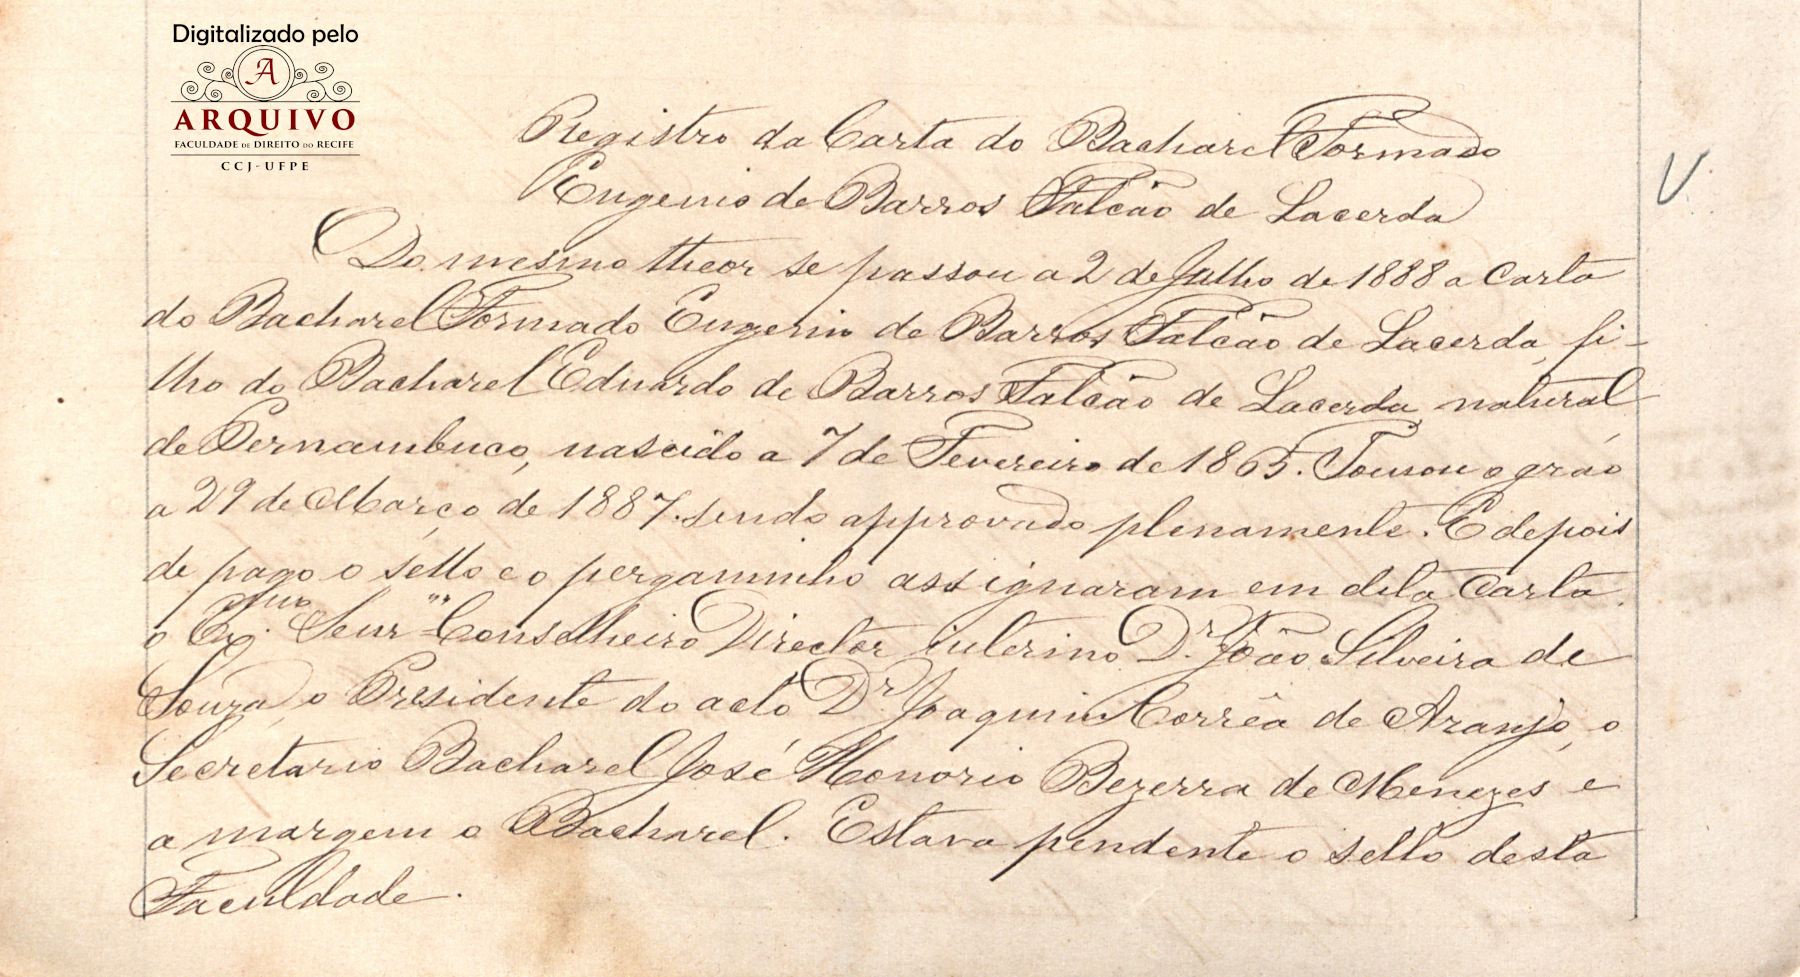 Digitalizado pelo
A
ARQUIVO
FACULDADE DE DIREITO DO RECIFE
CCJ-UFPE
Registro da Carta do Bacharel Formado
Eugenio de Barros Falcão de Lacerda
V
Do mesmo theor se passou a 2 de Julho de 1888 a Carta
do Bacharel Formado Eugenio de Barros Falcão de Lacerda, fi-
lho do Bacharel Eduardo de Barros Falcão de Lacerda, natural
de Pernambuco, nascido a 7 de Fevereiro de 1865. Tomou o gráo
a 29 de Março de 1887. sendo approvado plenamente. E depois
de pago o sello e o pergaminho assignaram em dita Carta
o Exmo. Senr. Conselheiro Director interino Dr. João Silveira de
Souza, o Presidente do acto, Dr. Joaquim Corrêa de Araujo, o
Secretario Bacharel José Honorio Bezerra de Menezes e
a margem o Bacharel. Estava pendente o sello desta
Faculdade.